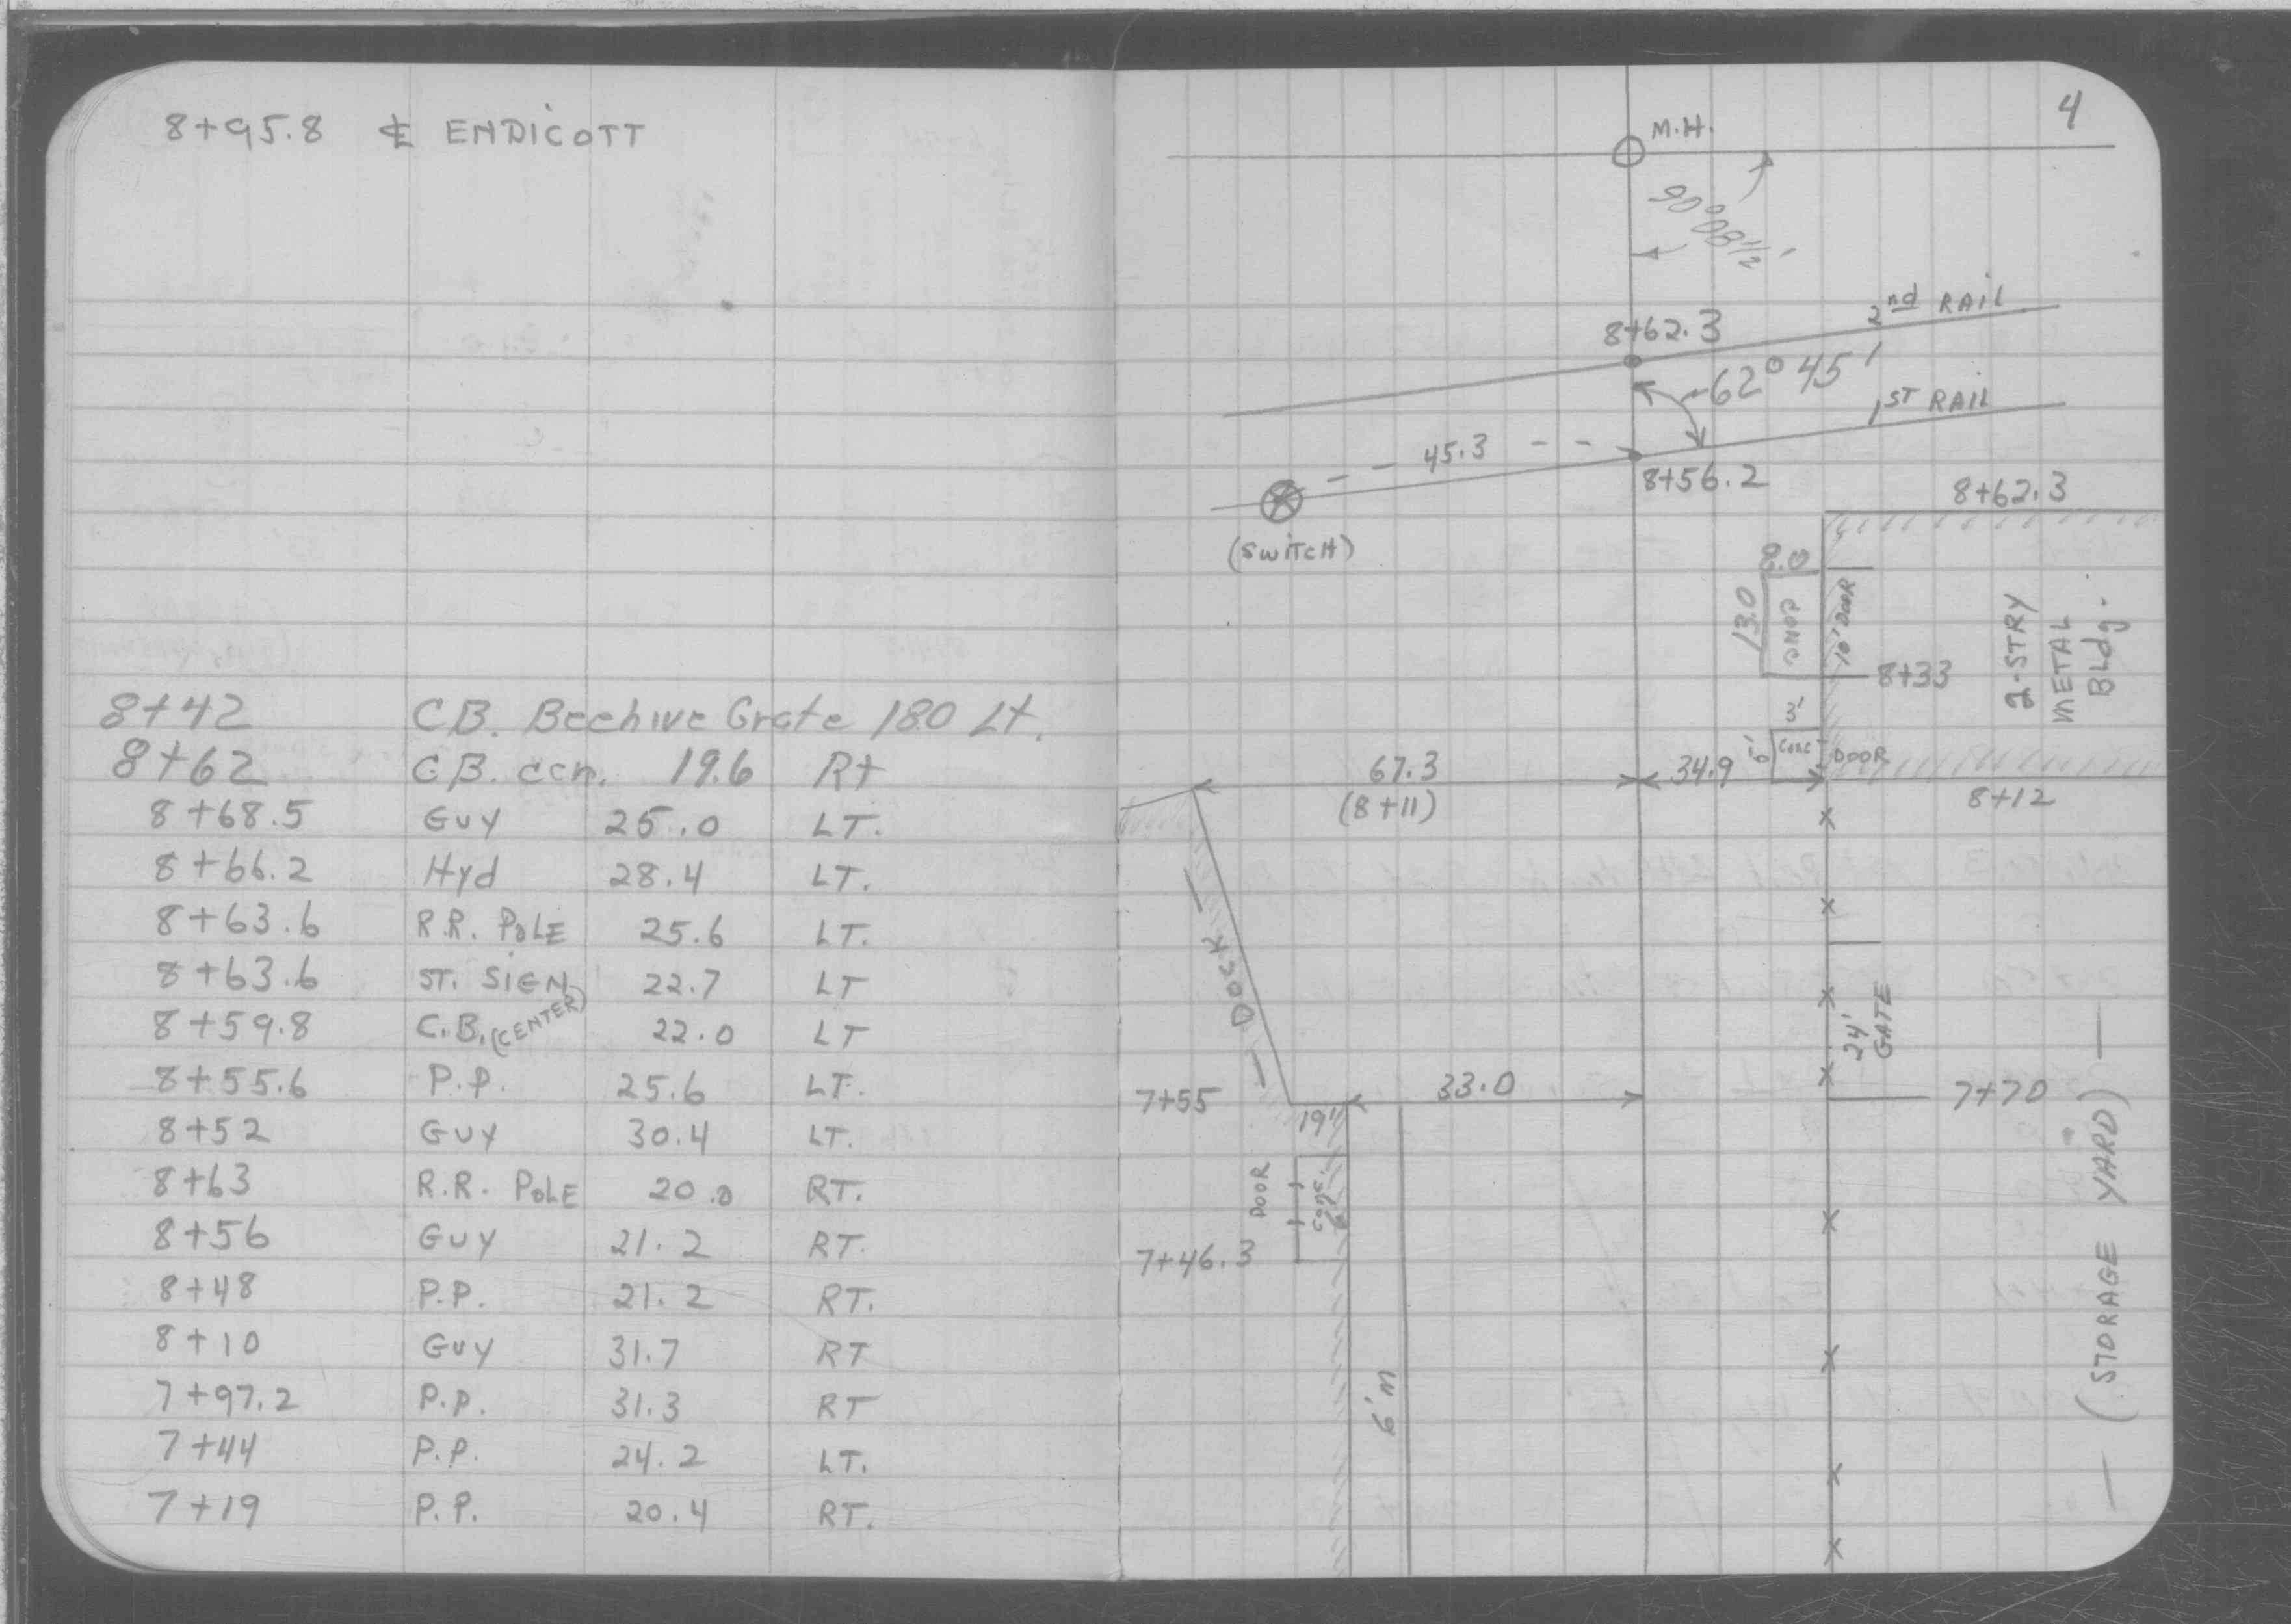 8+95.8 ℄ ENDICOTT
8+42 C.B. Beehive Grate 18.0 Lt.
8+62 C.B. cen. 19.6 Rt
8+68.5 GUY 25.0 LT.
8+66.2 Hyd 28.4 LT.
8+63.6 R.R. POLE 25.6 LT.
8+63.6 ST. SIGN 22.7 LT
8+59.8 C.B. (CENTER) 22.0 LT
8+55.6 P.P. 25.6 LT.
8+52 GUY 30.4 LT.
8+63 R.R. POLE 20.0 RT.
8+56 GUY 21.2 RT.
8+48 P.P. 21.2 RT.
8+10 GUY 31.7 RT
7+97.2 P.P. 31.3 RT
7+44 P.P. 24.2 LT.
7+19 P.P. 20.4 RT.
4
M.H.
90°08½'
2nd RAIL
8+62.3
62°45'
1ST RAIL
45.3
8+56.2
8+62.3
(SWITCH)
8.0
13.0
CONC
10' DOOR
2-STRY
METAL
Bldg.
8+33
3'
6'
CONC
DOOR
67.3
34.9
(8+11)
8+12
— DOCK —
24'
GATE
7+55
33.0
7+70
19"
DOOR
CONC.
7+46.3
6' M
— (STORAGE YARD) —